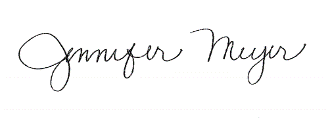 Jennifer Meyer